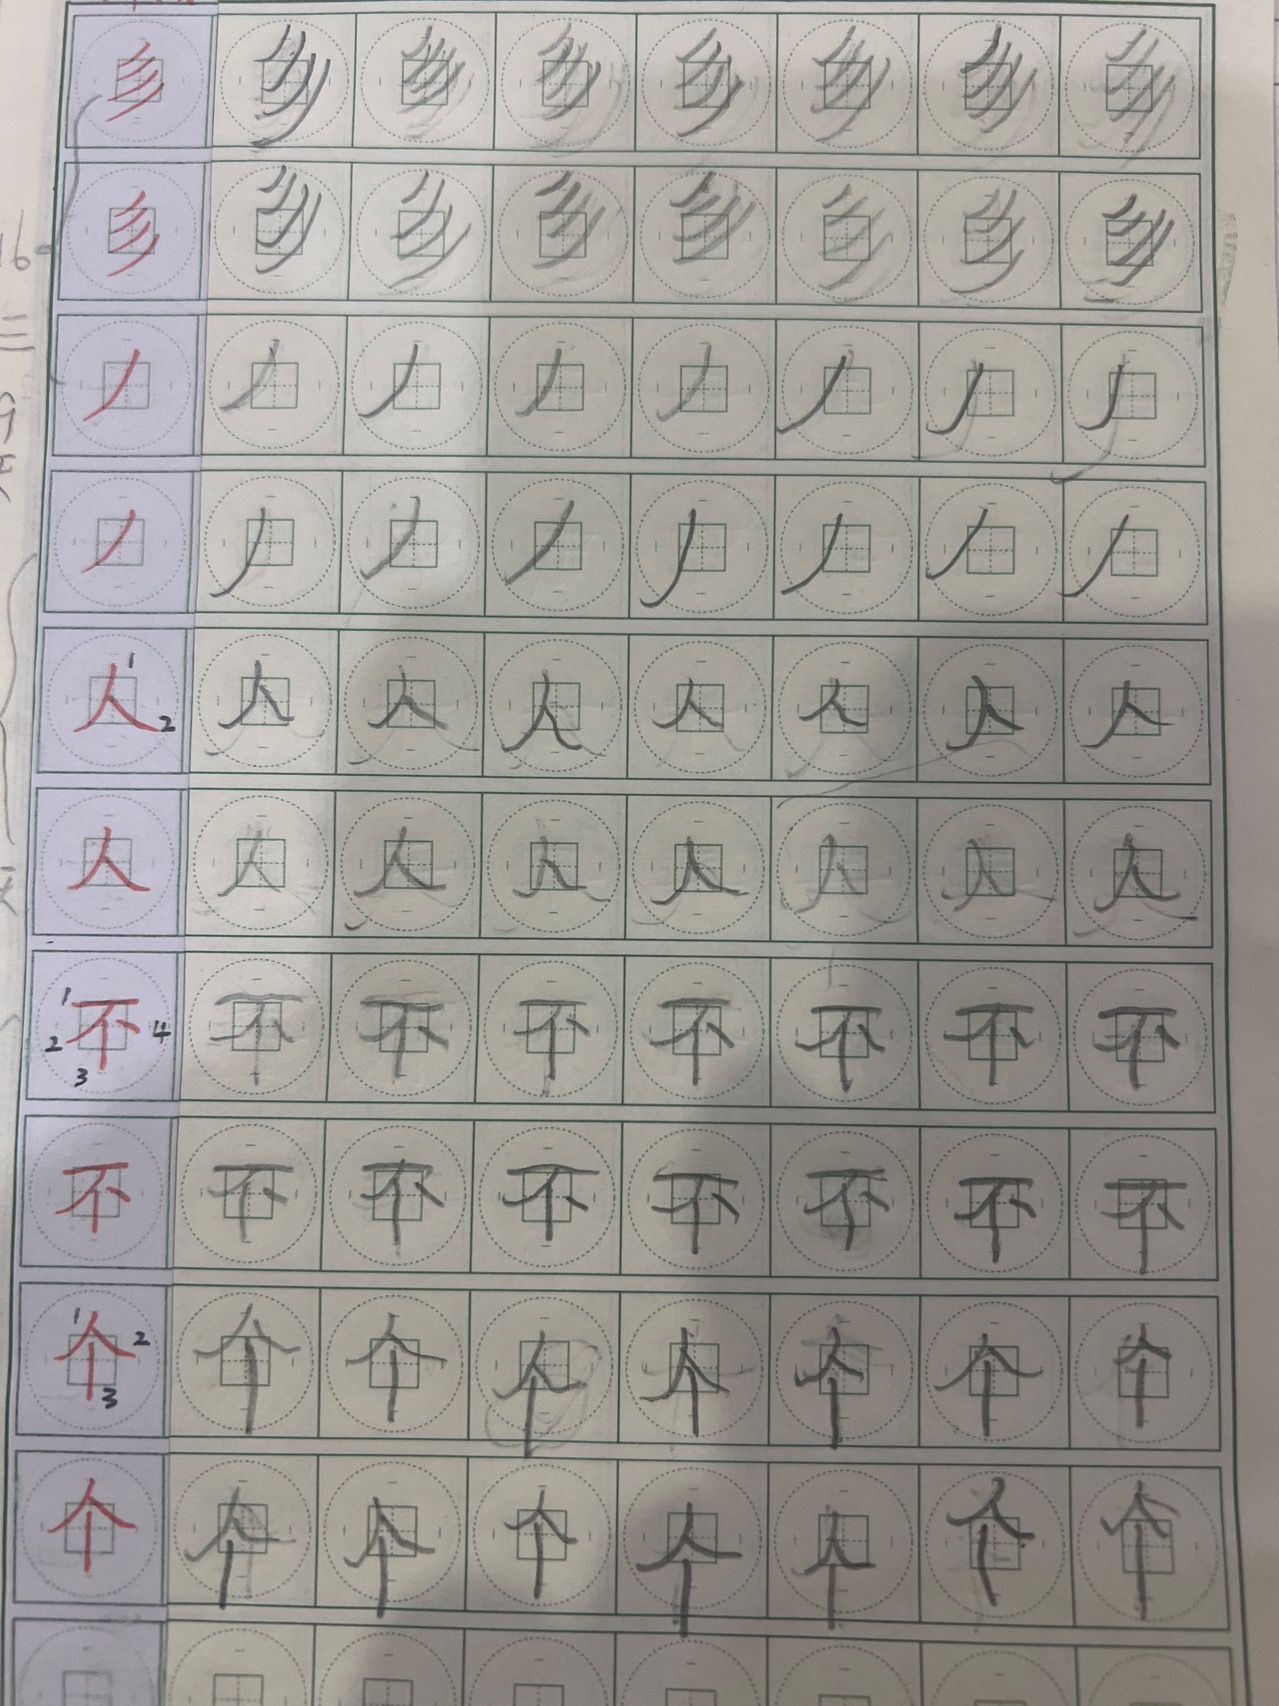 丿 丿 丿 丿 丿 丿 丿 丿
丿 丿 丿 丿 丿 丿 丿 丿
人 1 2 人 人 人 人 人 人 人
人 人 人 人 人 人 人 人
1 2 3 4 不 不 不 不 不 不 不 不
不 不 不 不 不 不 不 不
1 2 3 个 个 个 个 个 个 个 个
个 个 个 个 个 个 个 个